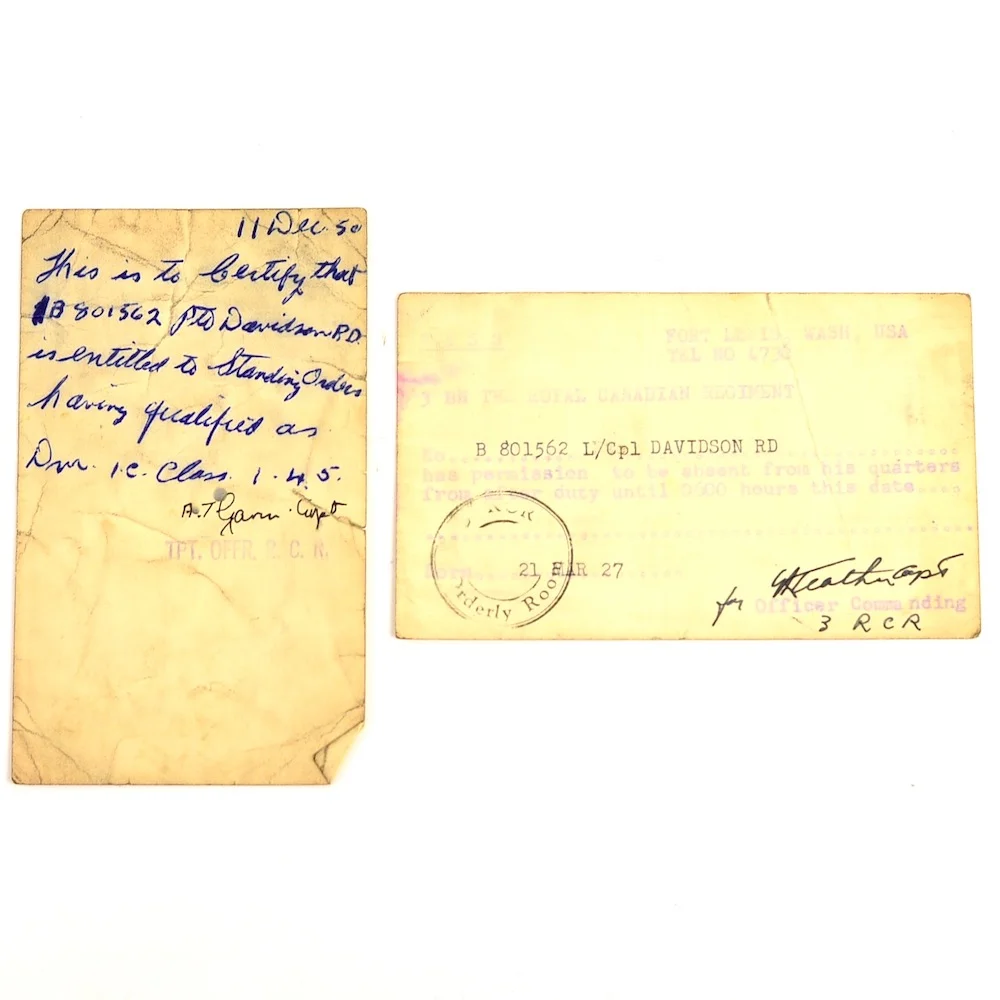 11 Dec. 50
This is to Certify that
B 801562 Pte Davidson R.D.
is entitled to Standing Orders
having qualified as
Dvr. I.C. Class. 1. 4. 5.
Capt
TPT. OFFR. R. C. R.
FORT LEWIS, WASH, USA
TEL NO
3 BN THE ROYAL CANADIAN REGIMENT
B 801562 L/Cpl DAVIDSON RD
has permission to be absent from his quarters
from after duty until 0600 hours this date....
3 RCR
Orderly Room
21 MAR 27
Capt
for Officer Commanding
3 RCR